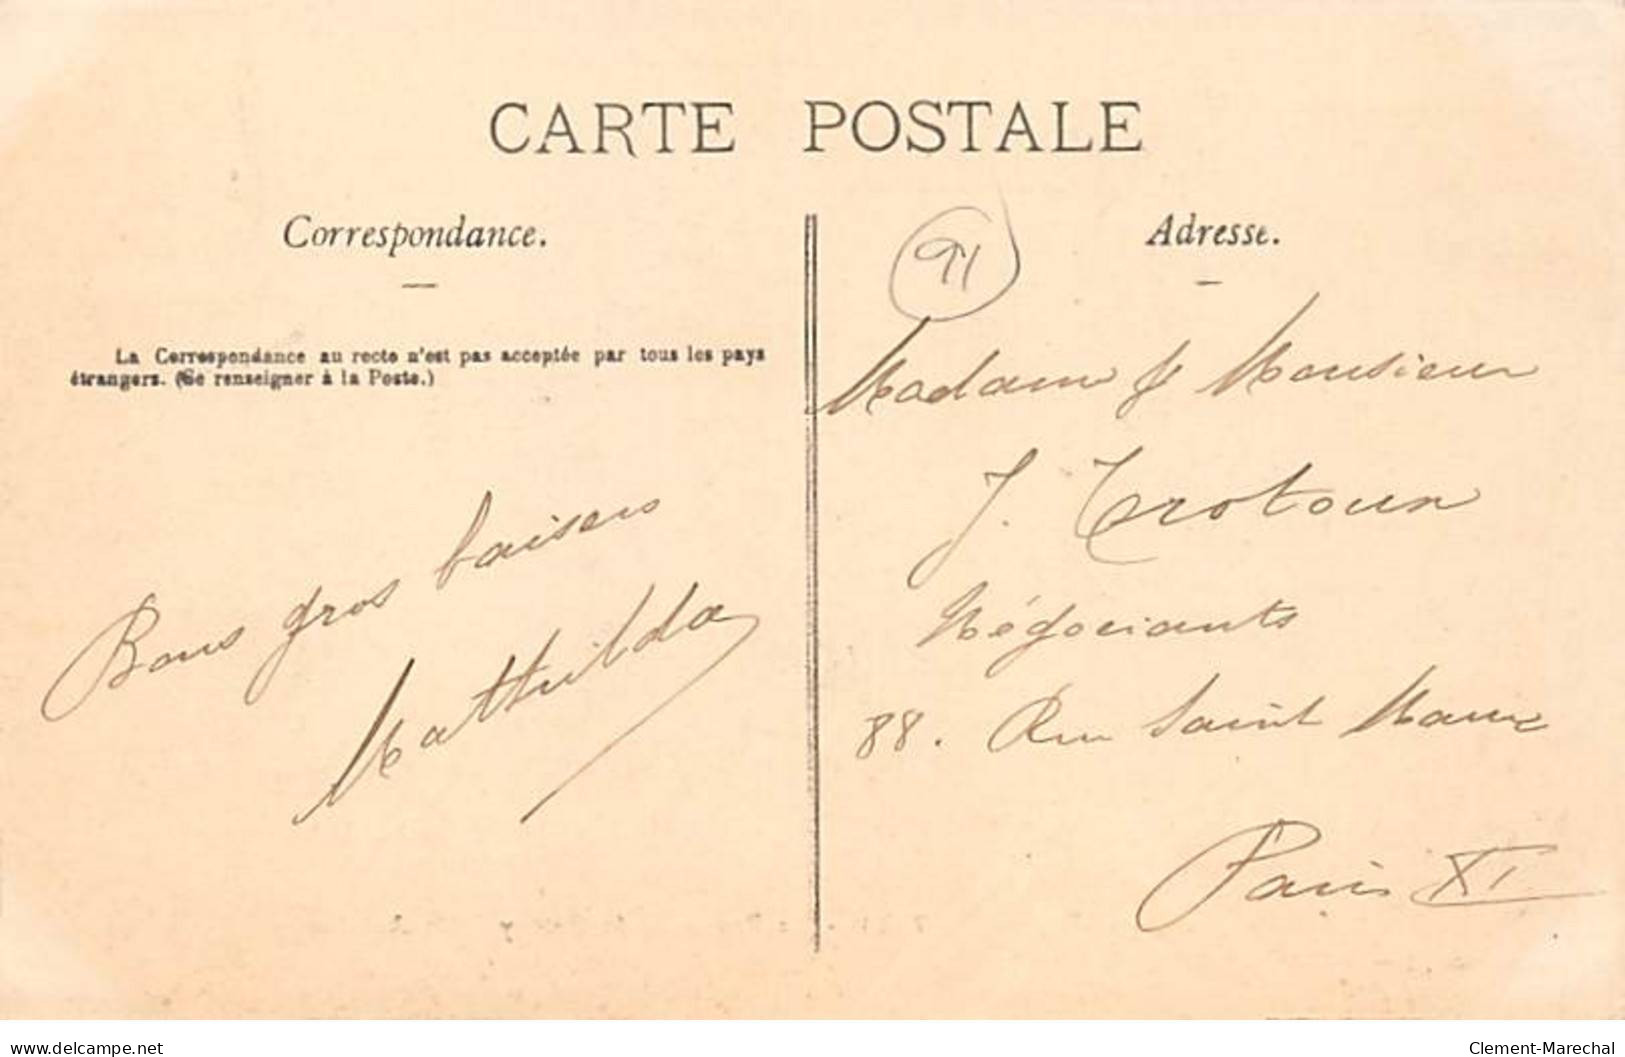 CARTE POSTALE
Correspondance.
La Correspondance au recto n'est pas acceptée par tous les pays
étrangers. (Se renseigner à la Poste.)
Bons gros baisers
Mathilda
91
Adresse.
Madame & Monsieur
J. Trotoux
Négociants
88. Rue Saint Maur
Paris XI
delcampe.net
Clement-Marechal